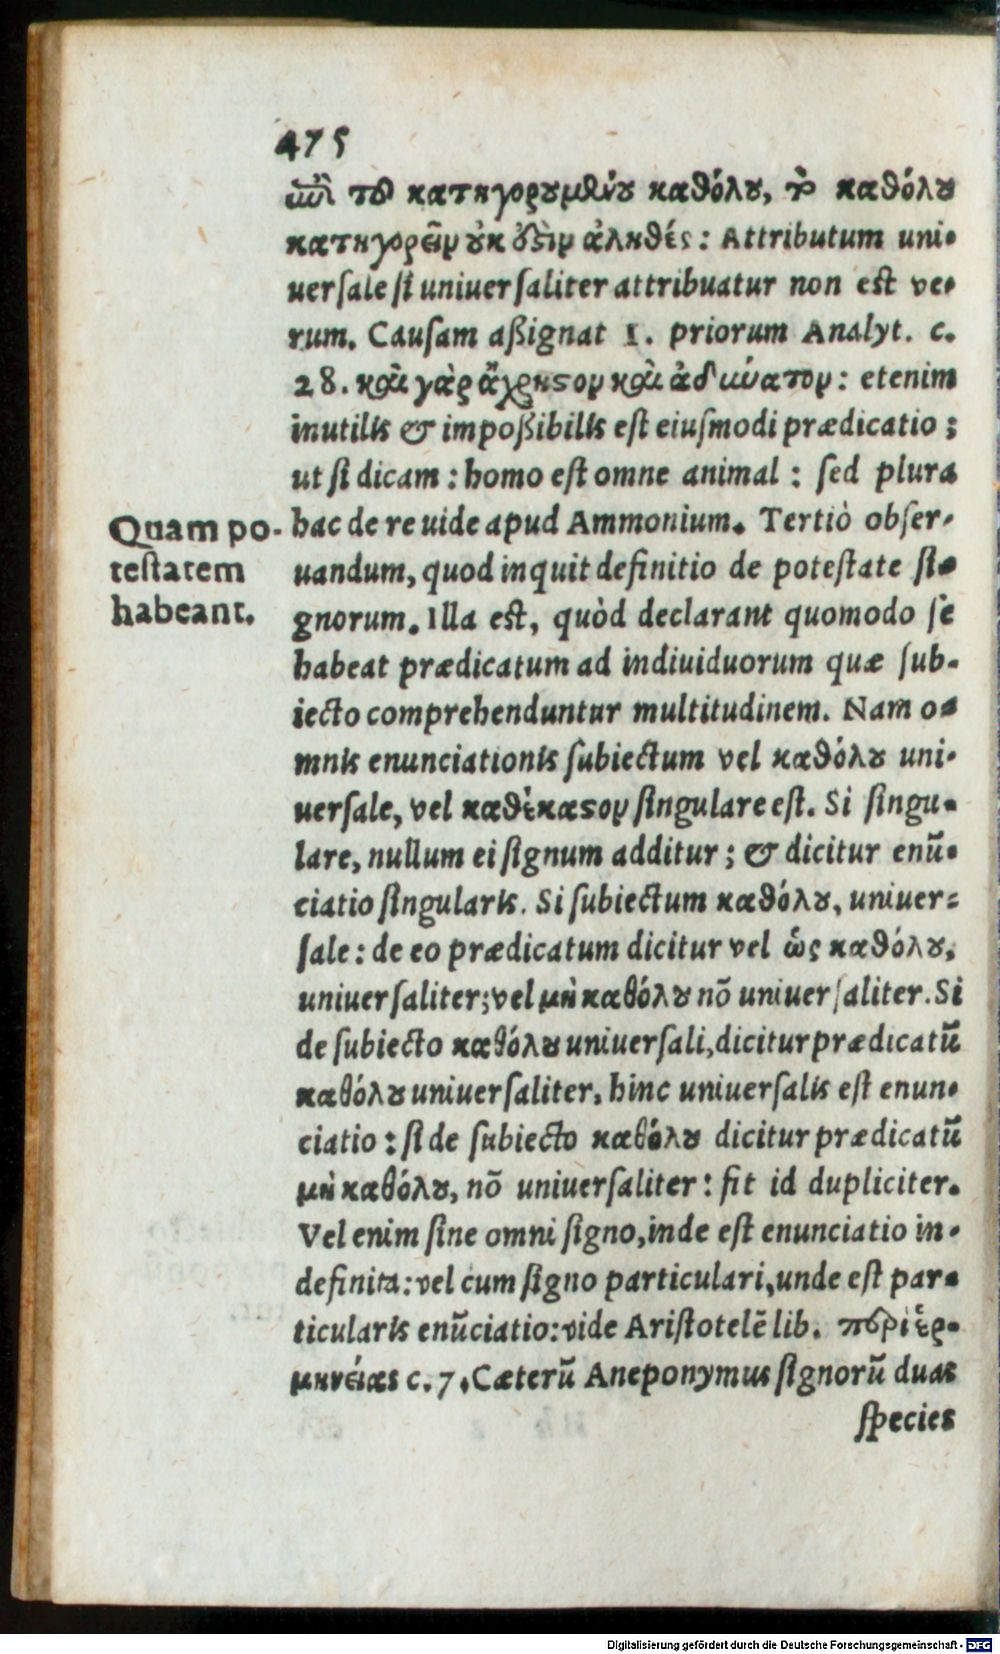 475
ἐπὶ τοῦ κατηγορουμένου καθόλου, τὸ καθόλου
κατηγορεῖν οὐκ ἔστιν ἀληθές: Attributum uni-
uersale si uniuersaliter attribuatur non est ve-
rum. Causam aßignat 1. priorum Analyt. c.
28. καὶ γὰρ ἄχρηστον καὶ ἀδύνατον: etenim
inutilis & impoßibilis est eiusmodi prædicatio;
ut si dicam: homo est omne animal: sed plura
Quam po-
testatem
habeant.
hac de re uide apud Ammonium. Tertiò obser-
uandum, quod inquit definitio de potestate si-
gnorum. Illa est, quòd declarant quomodo se
habeat prædicatum ad indiuiduorum quæ sub-
iecto comprehenduntur multitudinem. Nam o-
mnis enunciationis subiectum vel καθόλου uni-
uersale, vel καθέκαστον singulare est. Si singu-
lare, nullum ei signum additur; & dicitur enũ-
ciatio singularis. Si subiectum καθόλου, uniuer-
sale: de eo prædicatum dicitur vel ὡς καθόλου,
uniuersaliter; vel μὴ καθόλου nõ uniuersaliter. Si
de subiecto καθόλου uniuersali, dicitur prædicatũ
καθόλου uniuersaliter, hinc uniuersalis est enun-
ciatio: si de subiecto καθόλου dicitur prædicatũ
μὴ καθόλου, nõ uniuersaliter: fit id dupliciter.
Vel enim sine omni signo, inde est enunciatio in-
definita: vel cum signo particulari, unde est par-
ticularis enũciatio: vide Aristotelẽ lib. περὶ ἑρ-
μηνείας c. 7. Cæterũ Aneponymus signorũ duas
species
Digitalisierung gefördert durch die Deutsche Forschungsgemeinschaft - DFG